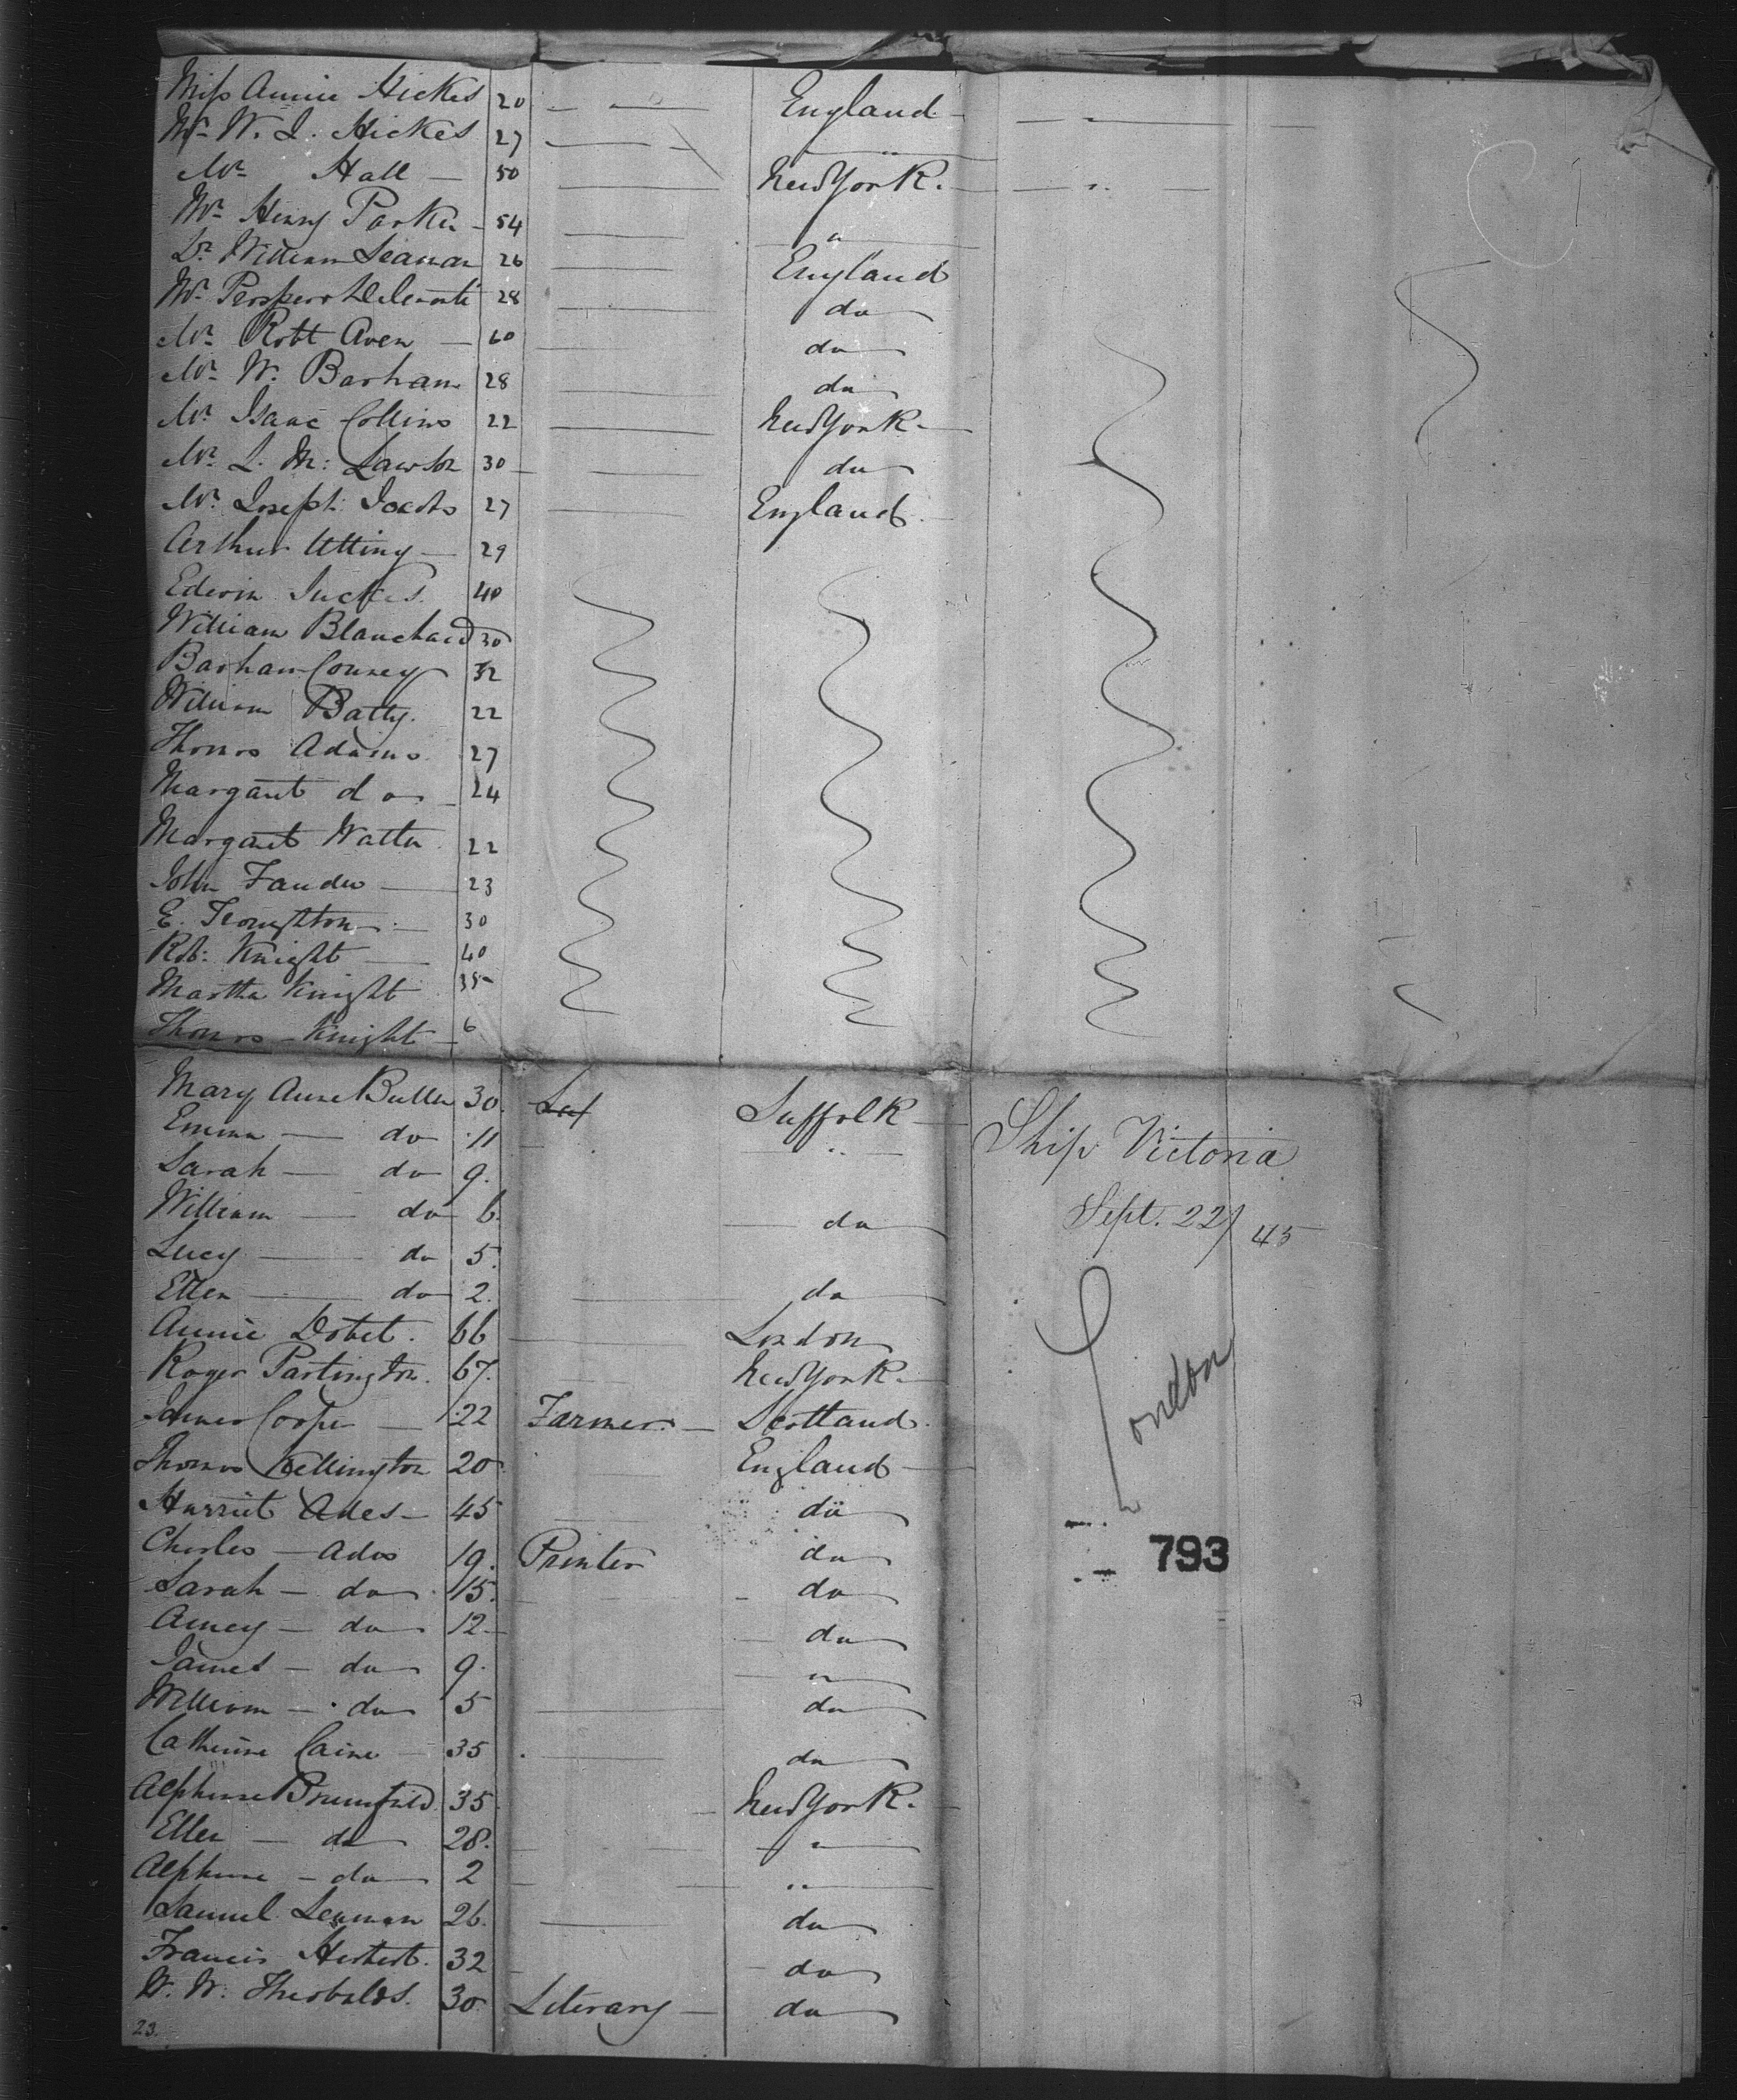 Miss Annie Hickes 20 England
Mr W. J. Hickes 27 "
Mr Hall 50 New York "
Mr Henry Parker 54 "
Dr William Seaman 26 England
Mr 28 do
Mr Robt Aven 60 do
Mr W. Barham 28 do
Mr Isaac Collins 22 New York
Mr L. M. Lawson 30 do
Mr Joseph Jacobs 27 England
Arthur Utting 29
Edwin 40
William Blanchard 30
Barham Coursey 32
William Batty 22
Thomas Adams 27
Margaret do 24
Margaret Watten 22
John 23
E. Troughton 30
Rob: Knight 40
Martha Knight 35
Thomas Knight 6
Mary Anne Buller 30. Suffolk
Emma do 11 "
Sarah do 9.
William do 6. do
Lucy do 5.
Ellen do 2. do
Annie Dobet. 66 London
Roger Partington. 67. New York
James Cooper 22 Farmer Scotland
Thomas Kellington 20 England
Harriet Ades 45 do
Charles Ades 19. Printer do
Sarah do 15. do
Amey do 12 do
James do 9. "
William do 5 do
Catherine Caine 35 do
Alphonse Brumfield. 35 New York
Ellen do 28. "
Alphonse do 2 "
Samuel Leaman 26. do
Francis Herbert. 32 do
W. W. Theobalds. 30 Literary do
23.
Ship Victoria
Sept. 22/45
London
793